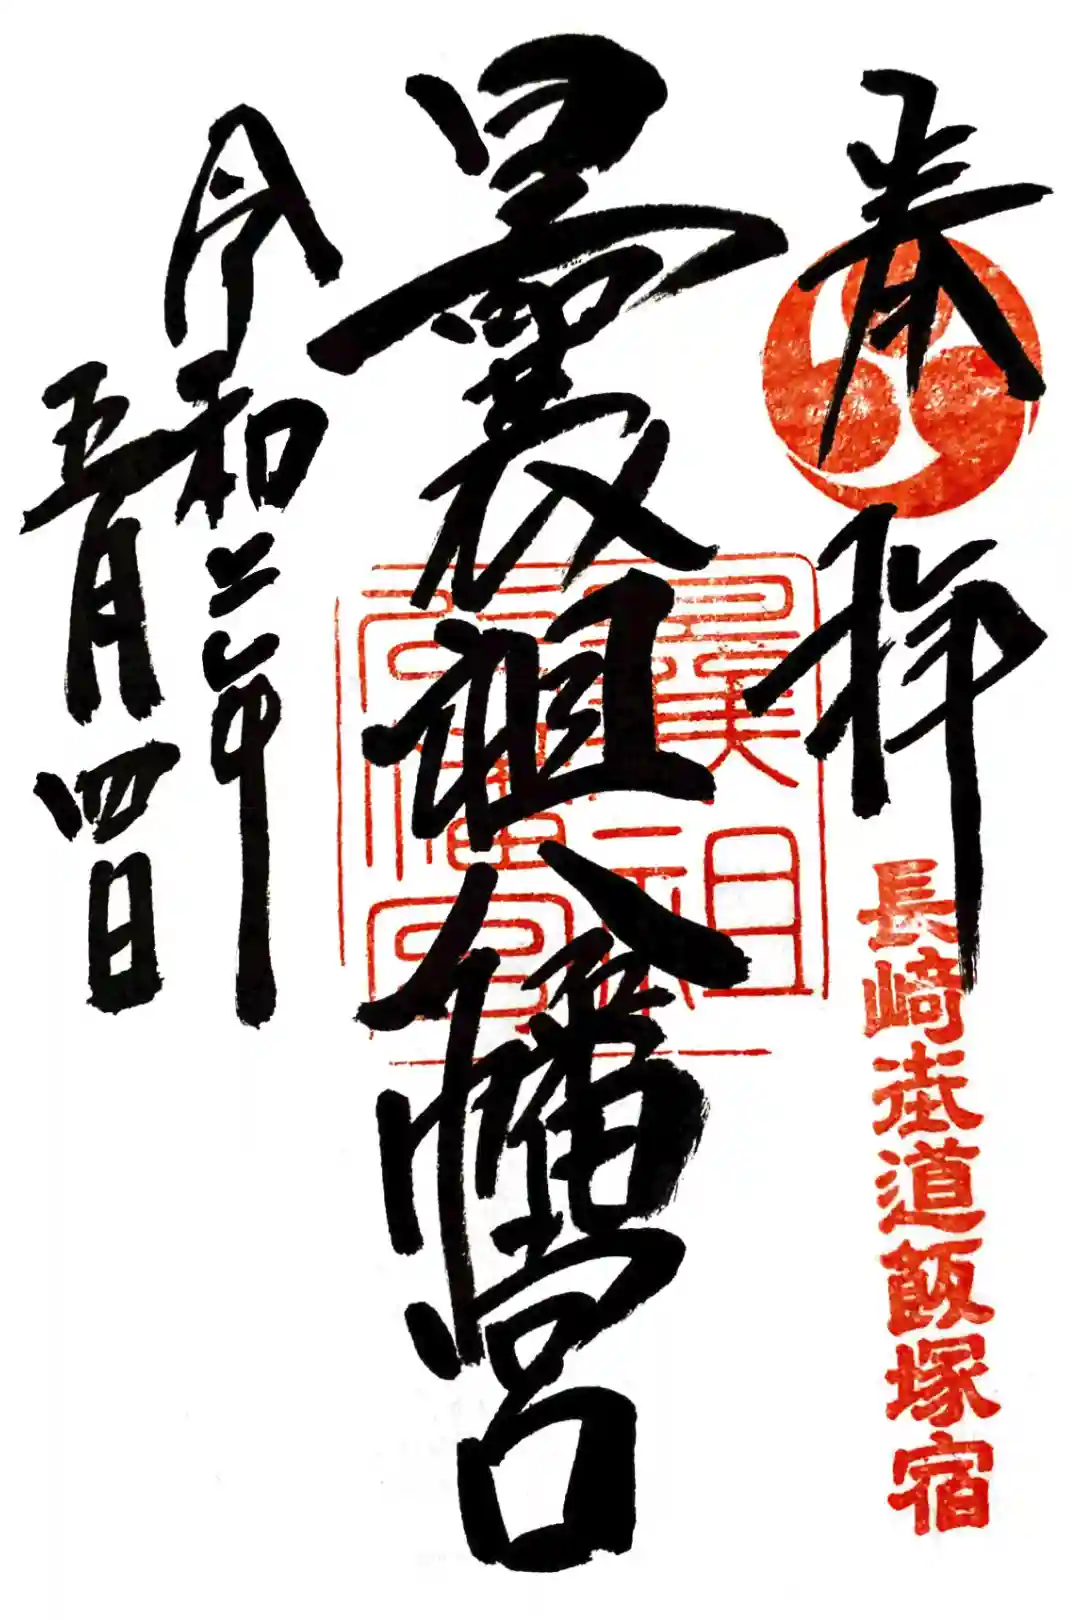 奉拝
長崎街道飯塚宿
曩祖八幡宮
曩祖
八幡宮
令和二年
五月四日